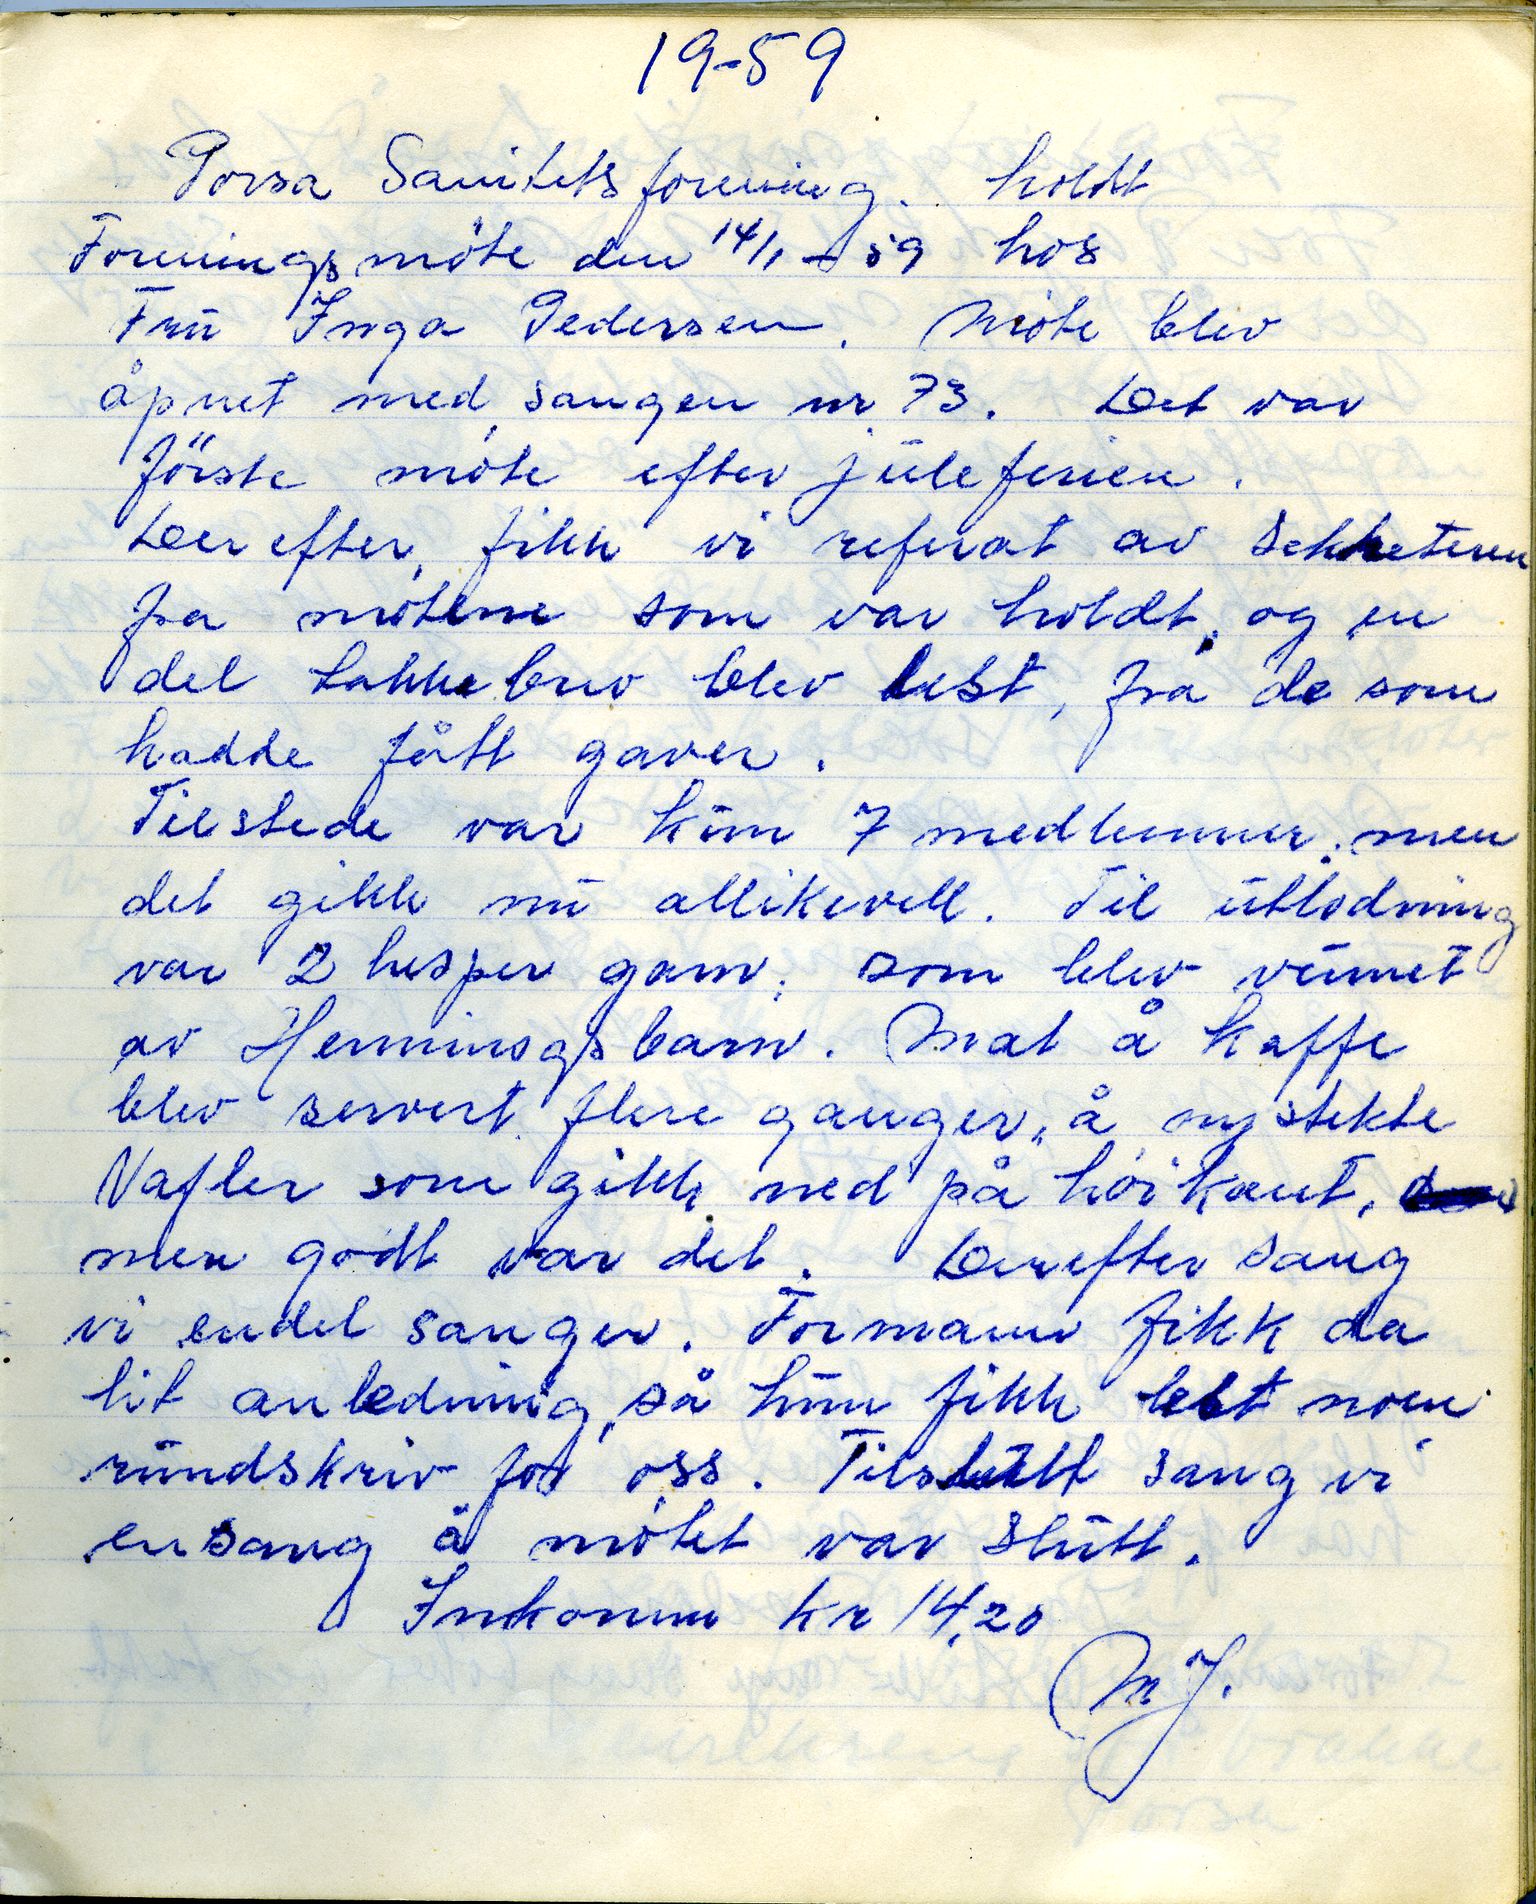 19-59
Porsa Sanitetsforening. holdt
Foreningsmöte den 14/1-59 hos
Frü Inga Pedersen. Möte blev
åpnet med sangen nr. 73. Det var
förste möte efter jüleferien.
Derefter, fikk vi referat av Sekreteren
fra mötene som var holdt, og en
del takkebrev blev lest, fra de som
hadde fått gaver.
Tilstede var kün 7 medlemmer, men
det gikk nü allikevell. Til ütlodning
var 2 hesper garn, som blev vünnet
av Henningsgs barn. Mat å kaffe
blev servert flere ganger, å nystekte
Vafler som gikk ned på höikant,
men godt var det. Derefter sang
vi endel sanger. Formann fikk da
lit anledning, så hün fikk lest noen
ründskriv for oss. Tilslütt sang vi
en sang å mötet var slütt.
Inkomm kr 14,20
M J.